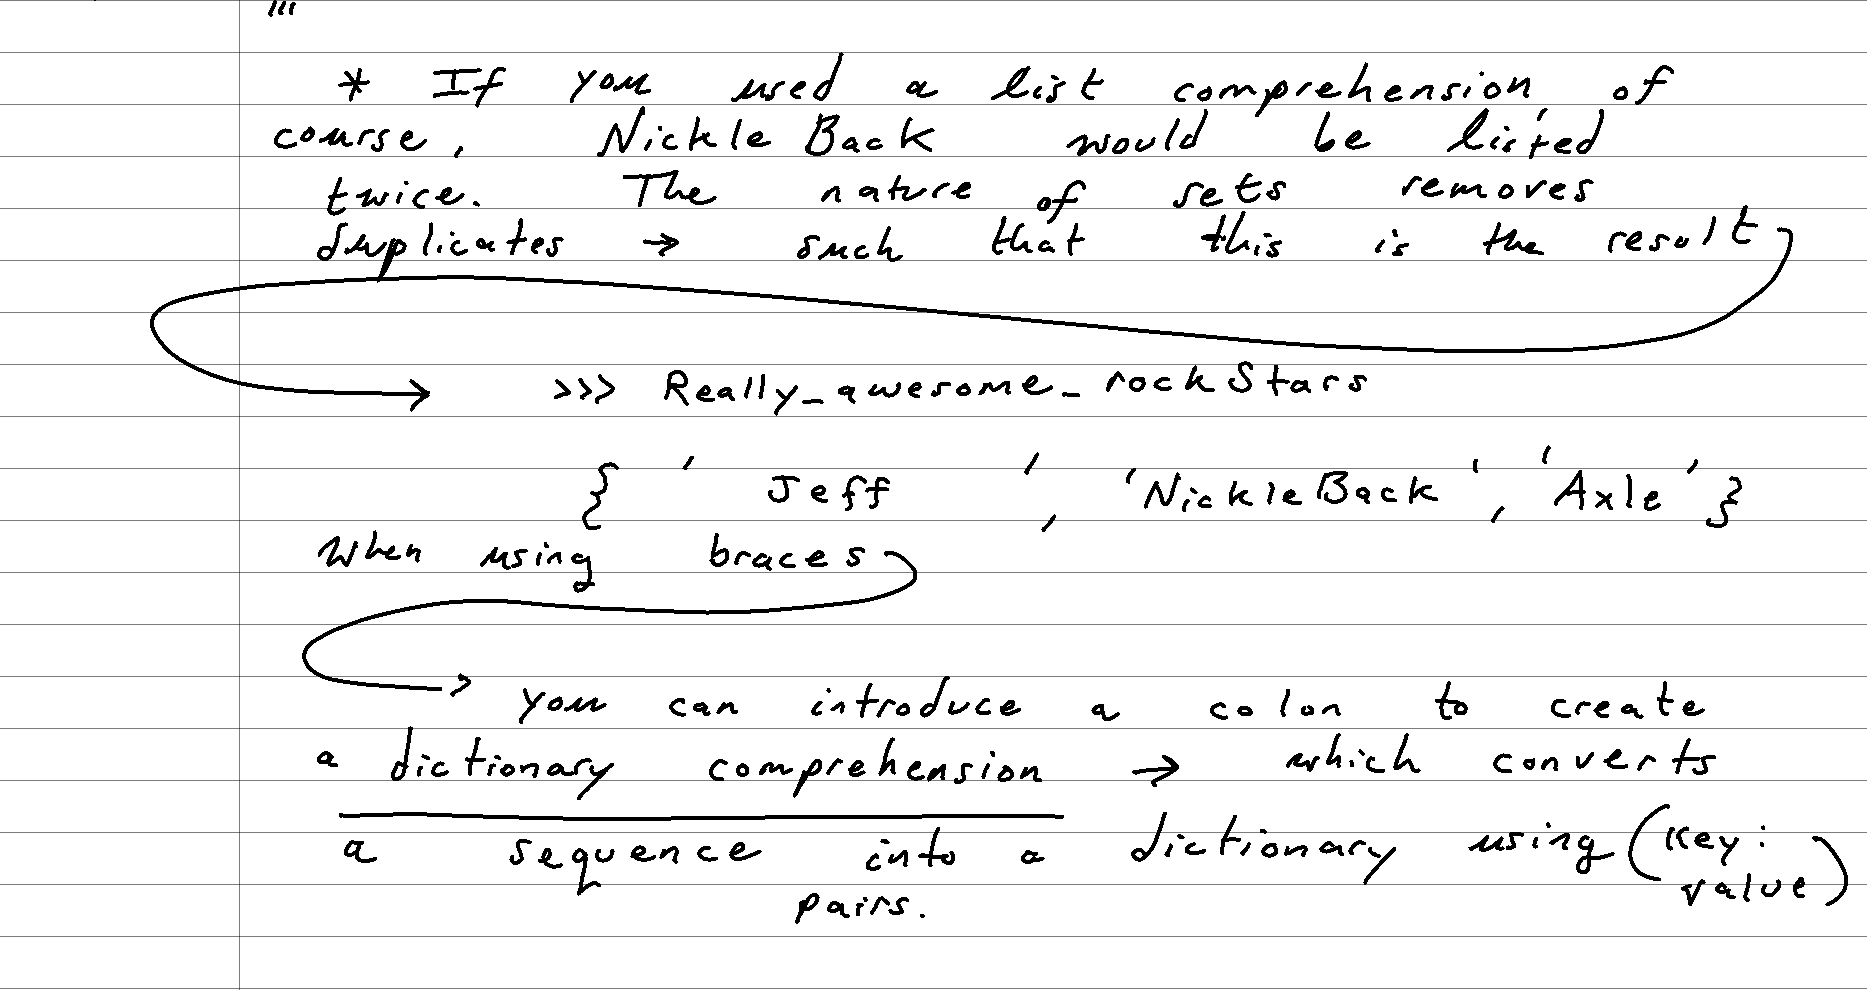 * If you used a list comprehension, of
course, Nickle Back would be listed
twice. The nature of sets removes
duplicates → such that this is the result
→ >>> Really_awesome_rockStars
{ ' Jeff ', 'NickleBack', 'Axle' }
When using braces
→ you can introduce a colon to create
a dictionary comprehension → which converts
a sequence into a dictionary using (Key:
value)
pairs.